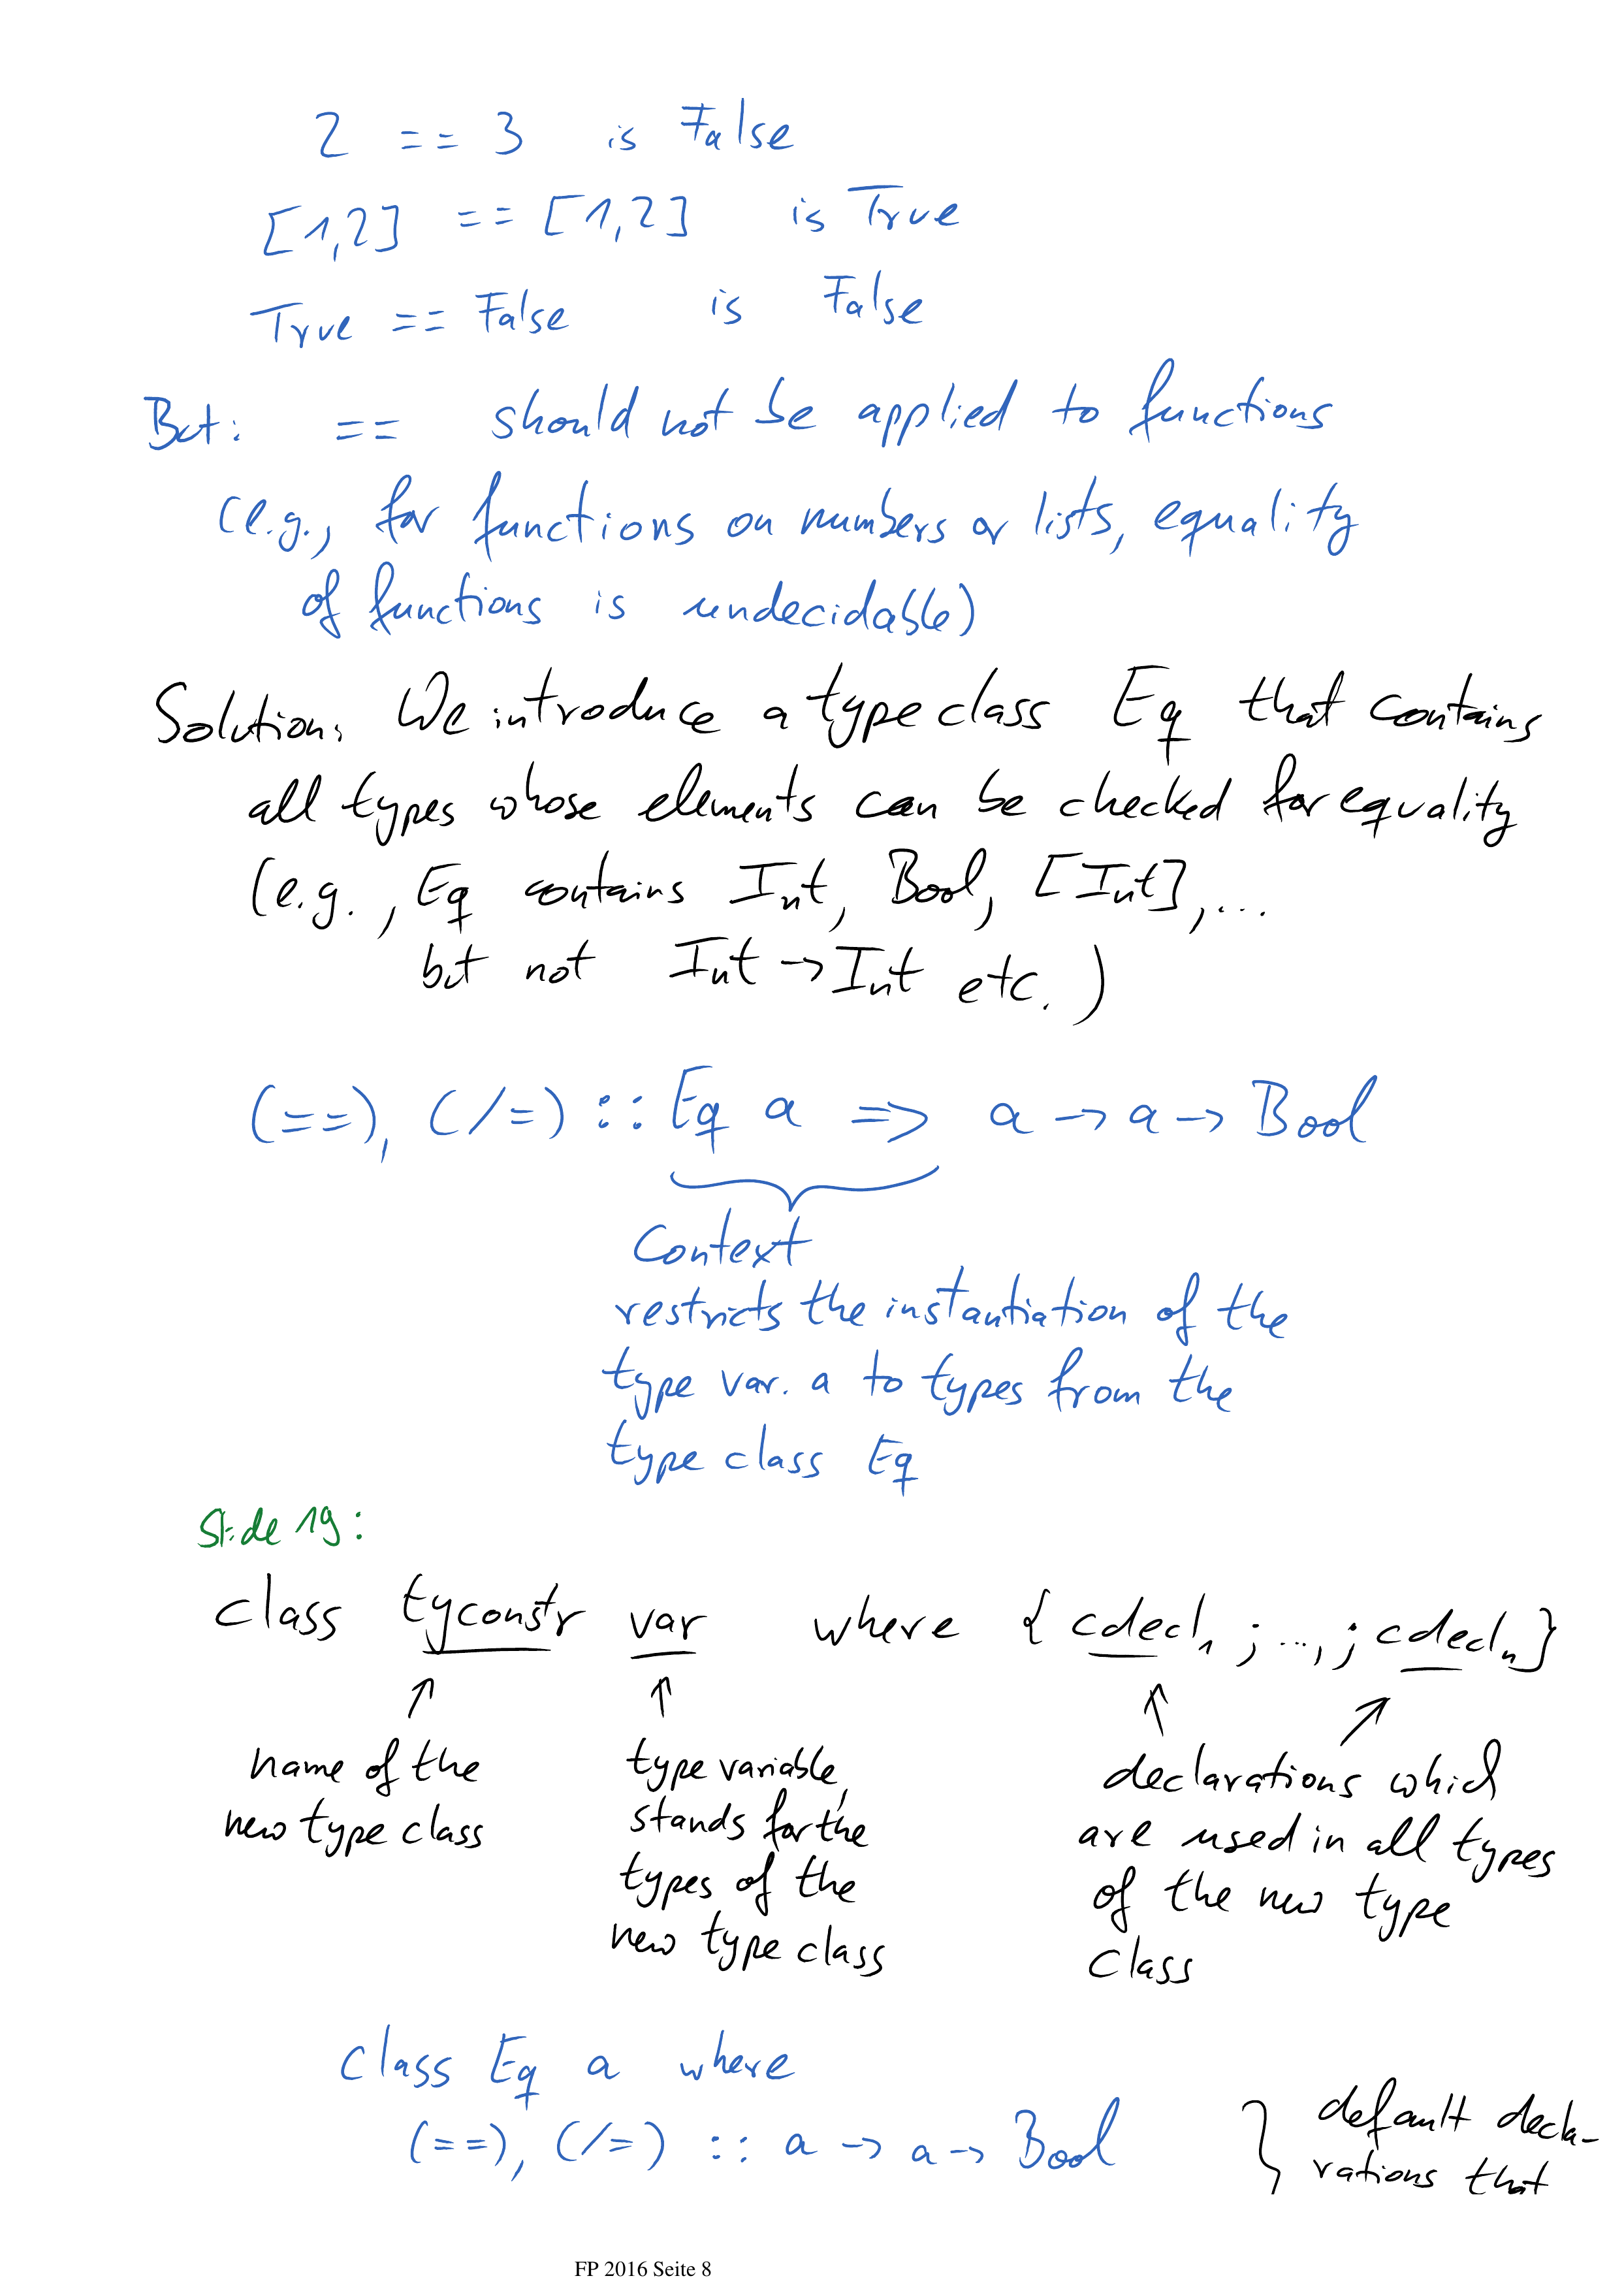 2 == 3 is False
[1,2] == [1,2] is True
True == False is False
But: == should not be applied to functions
(e.g., for functions on numbers or lists, equality
of functions is undecidable)
Solution: We introduce a type class Eq that contains
all types whose elements can be checked for equality
(e.g., Eq contains Int, Bool, [Int],...
but not Int -> Int etc.)
(==), (/=) :: Eq a => a -> a -> Bool
Context
restricts the instantiation of the
type var. a to types from the
type class Eq
Slide 19:
class tyconstr var where { cdecl1 ; ..., ; cdecln }
↑ ↑ ↑ ↗
name of the
new type class
type variable,
stands for the
types of the
new type class
declarations which
are used in all types
of the new type
class
class Eq a where
(==), (/=) :: a -> a -> Bool
} default decla-
rations that
FP 2016 Seite 8